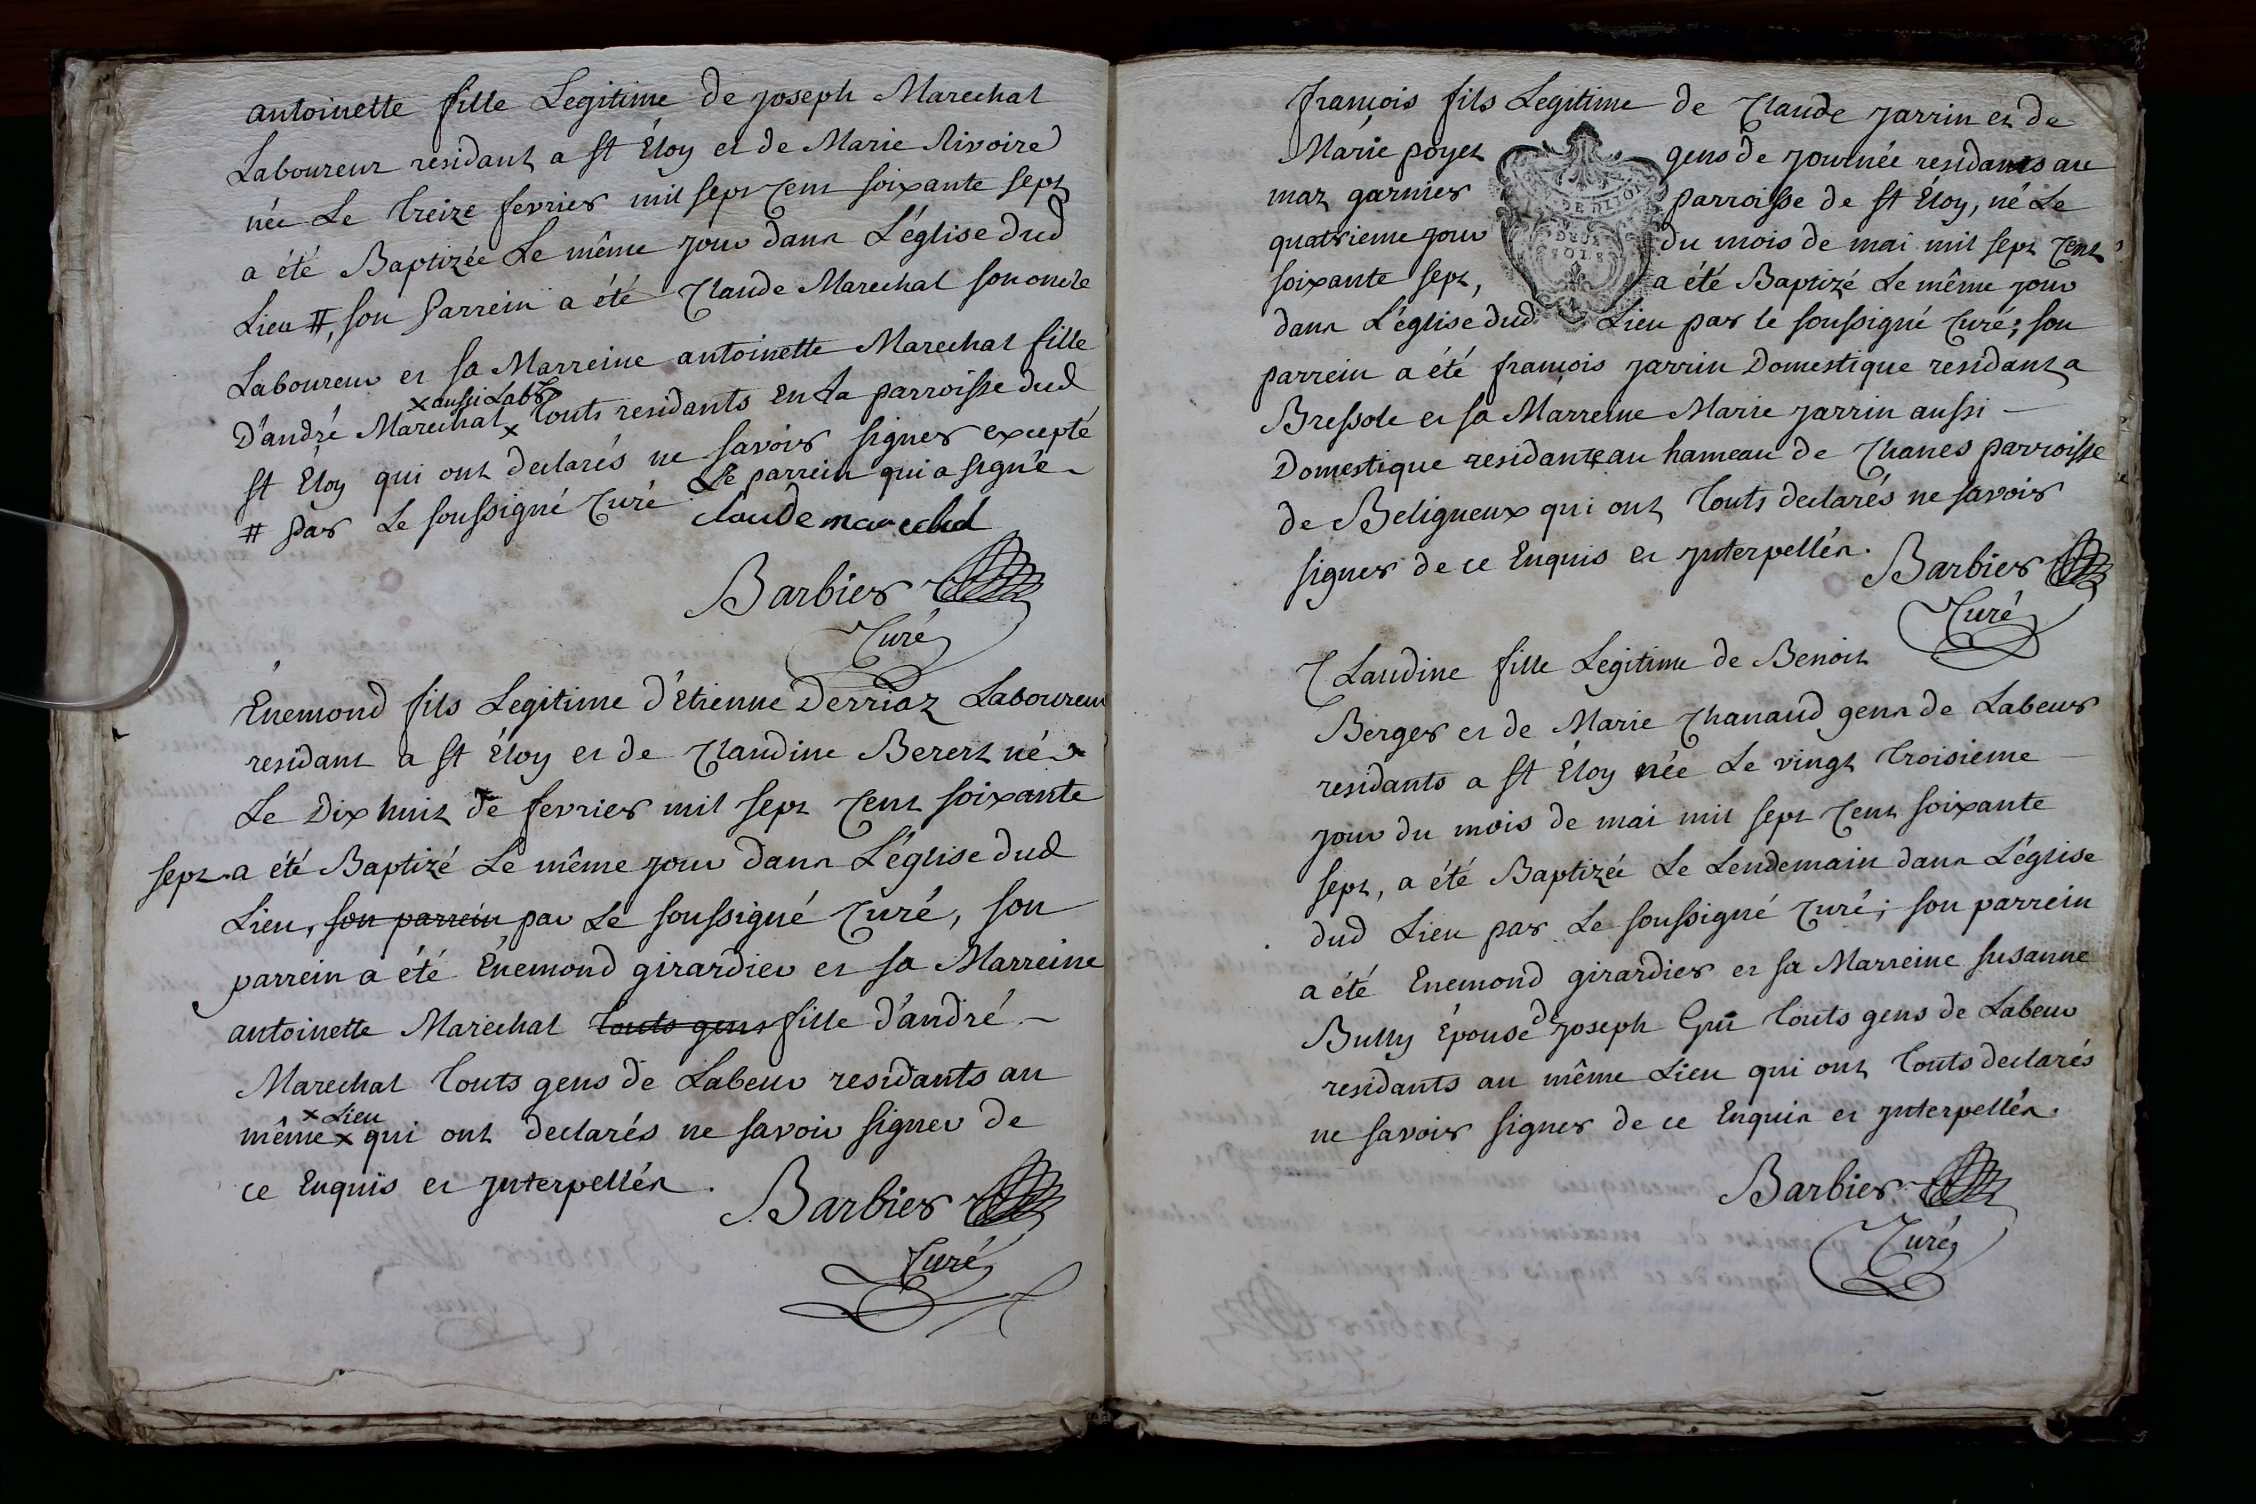 antoinette fille Legitime de joseph Marechal
Laboureur residant a st Éloy et de Marie Rivoire
née Le treize fevrier mil sept cent soixante sept
a été Baptizée Le même jour dans L'église dud
Lieu #, son Parrein a été Claude Marechal son oncle
Laboureur et sa Marreine antoinette Marechal fille
x aussi Labr
D'andré Marechal x touts residants en la parroisse dud
st Éloy qui ont declarés ne savoir signer excepté
Le parrein qui a signé
# par Le soussigné Curé
claude marechal
Barbier
Curé
Énemond fils Legitime d'Etienne Derriaz Laboureur
residant a st Éloy et de Claudine Berert né
Le Dix huit de fevrier mil sept cent soixante
sept a été Baptizé Le même jour dans L'église dud
Lieu, son parrein par Le soussigné Curé, son
parrein a été Énemond girardier et sa Marreine
antoinette Marechal touts gens fille d'andré
Marechal touts gens de Labeur residants au
x Lieu
même x qui ont declarés ne savoir signer de
ce Enquis et jnterpellés.
Barbier
Curé
françois fils Legitime de Claude jarrin et de
Marie poyet gens de journée residants au
maz garnier parroisse de st Éloy, né Le
quatrieme jour du mois de mai mil sept cent
soixante sept, a été Baptizé Le même jour
dans L'église dud Lieu par le soussigné Curé; son
parrein a été françois jarrin Domestique residant a
Bressole et sa Marreine Marie jarrin aussi
Domestique residante au hameau de Chanes parroisse
de Beligneux qui ont touts declarés ne savoir
signer de ce Enquis et jnterpellés.
Barbier
Curé
DE DIJON
DEUX
SOLS
Claudine fille Legitime de Benoit
Berger et de Marie Chanaud gens de Labeur
residants a st Éloy née Le vingt troisieme
jour du mois de mai mil sept cent soixante
sept, a été Baptizée Le Lendemain dans L'église
dud Lieu par Le soussigné Curé; son parrein
a été Enemond girardier et sa Marreine susanne
Bully Épouse de joseph Gui touts gens de Labeur
residants au même Lieu qui ont touts declarés
ne savoir signer de ce Enquis et jnterpellés.
Barbier
Curé